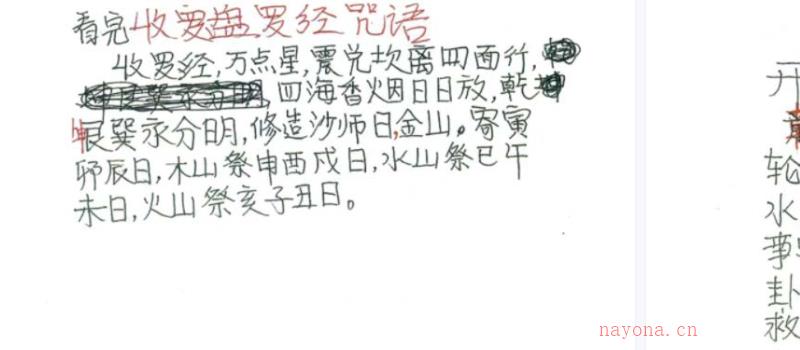 看完收罗盘罗经咒语
收罗经,万点星,震兑坎离四面行,
四海香烟日日放,乾坤
艮巽永分明,修造沙师日,金山。祭寅
卯辰日,木山祭申酉戌日,水山祭巳午
未日,火山祭亥子丑日。
开
轮
水
事
卦
救
nayona.cn